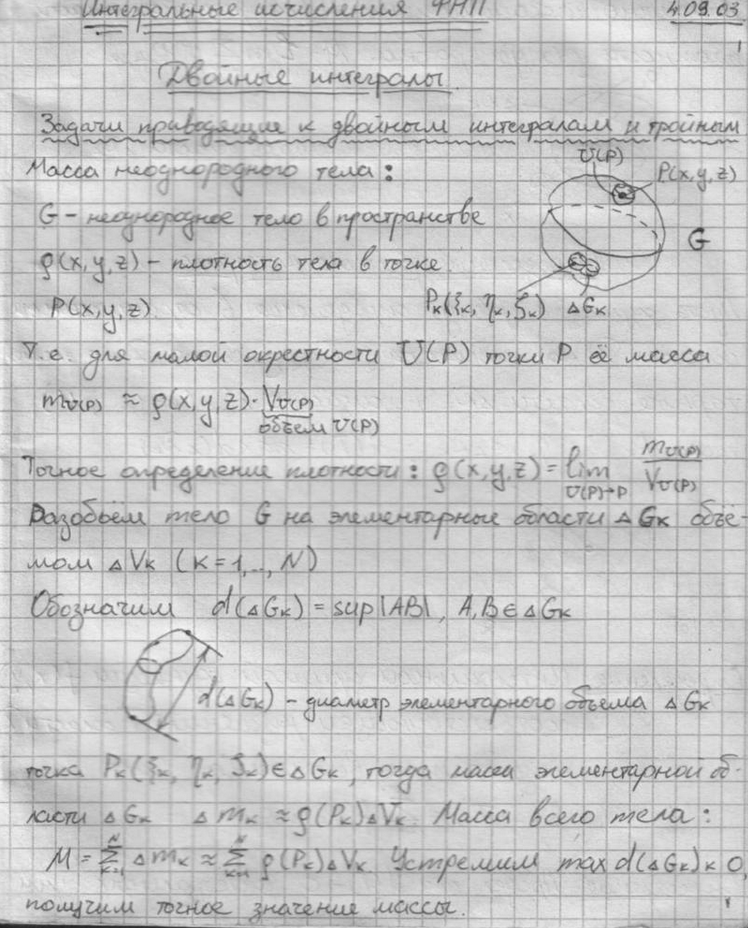 Интегральные исчисления ФНП 4.09.03
1
Двойные интегралы.
Задачи приводящие к двойным интегралам и тройным
Масса неоднородного тела:
U(P)
P(x,y,z)
G – неоднородное тело в пространстве
G
ρ(x,y,z) – плотность тела в точке
P(x,y,z).
Pк(ξк, ηк, ζк) ΔGк
Т.е. для малой окрестности U(P) точки P её масса
mU(P) ≈ ρ(x,y,z)·VU(P)
объем U(P)
Точное определение плотности: ρ(x,y,z) = lim U(P)→P mU(P)/VU(P)
Разобьём тело G на элементарные области ΔGк объё-
мом ΔVк (к=1,..,N)
Обозначим d(ΔGк) = sup|AB|, A,B∈ΔGк
d(ΔGк) – диаметр элементарного объема ΔGк
точка Pк(ξк, ηк, ζк)∈ΔGк, тогда масса элементарной об-
ласти ΔGк Δmк ≈ ρ(Pк)ΔVк. Масса всего тела:
M = ∑ᴺк=1 Δmк ≈ ∑ᴺк=1 ρ(Pк)ΔVк. Устремим max d(ΔGк) к 0,
получим точное значение массы.